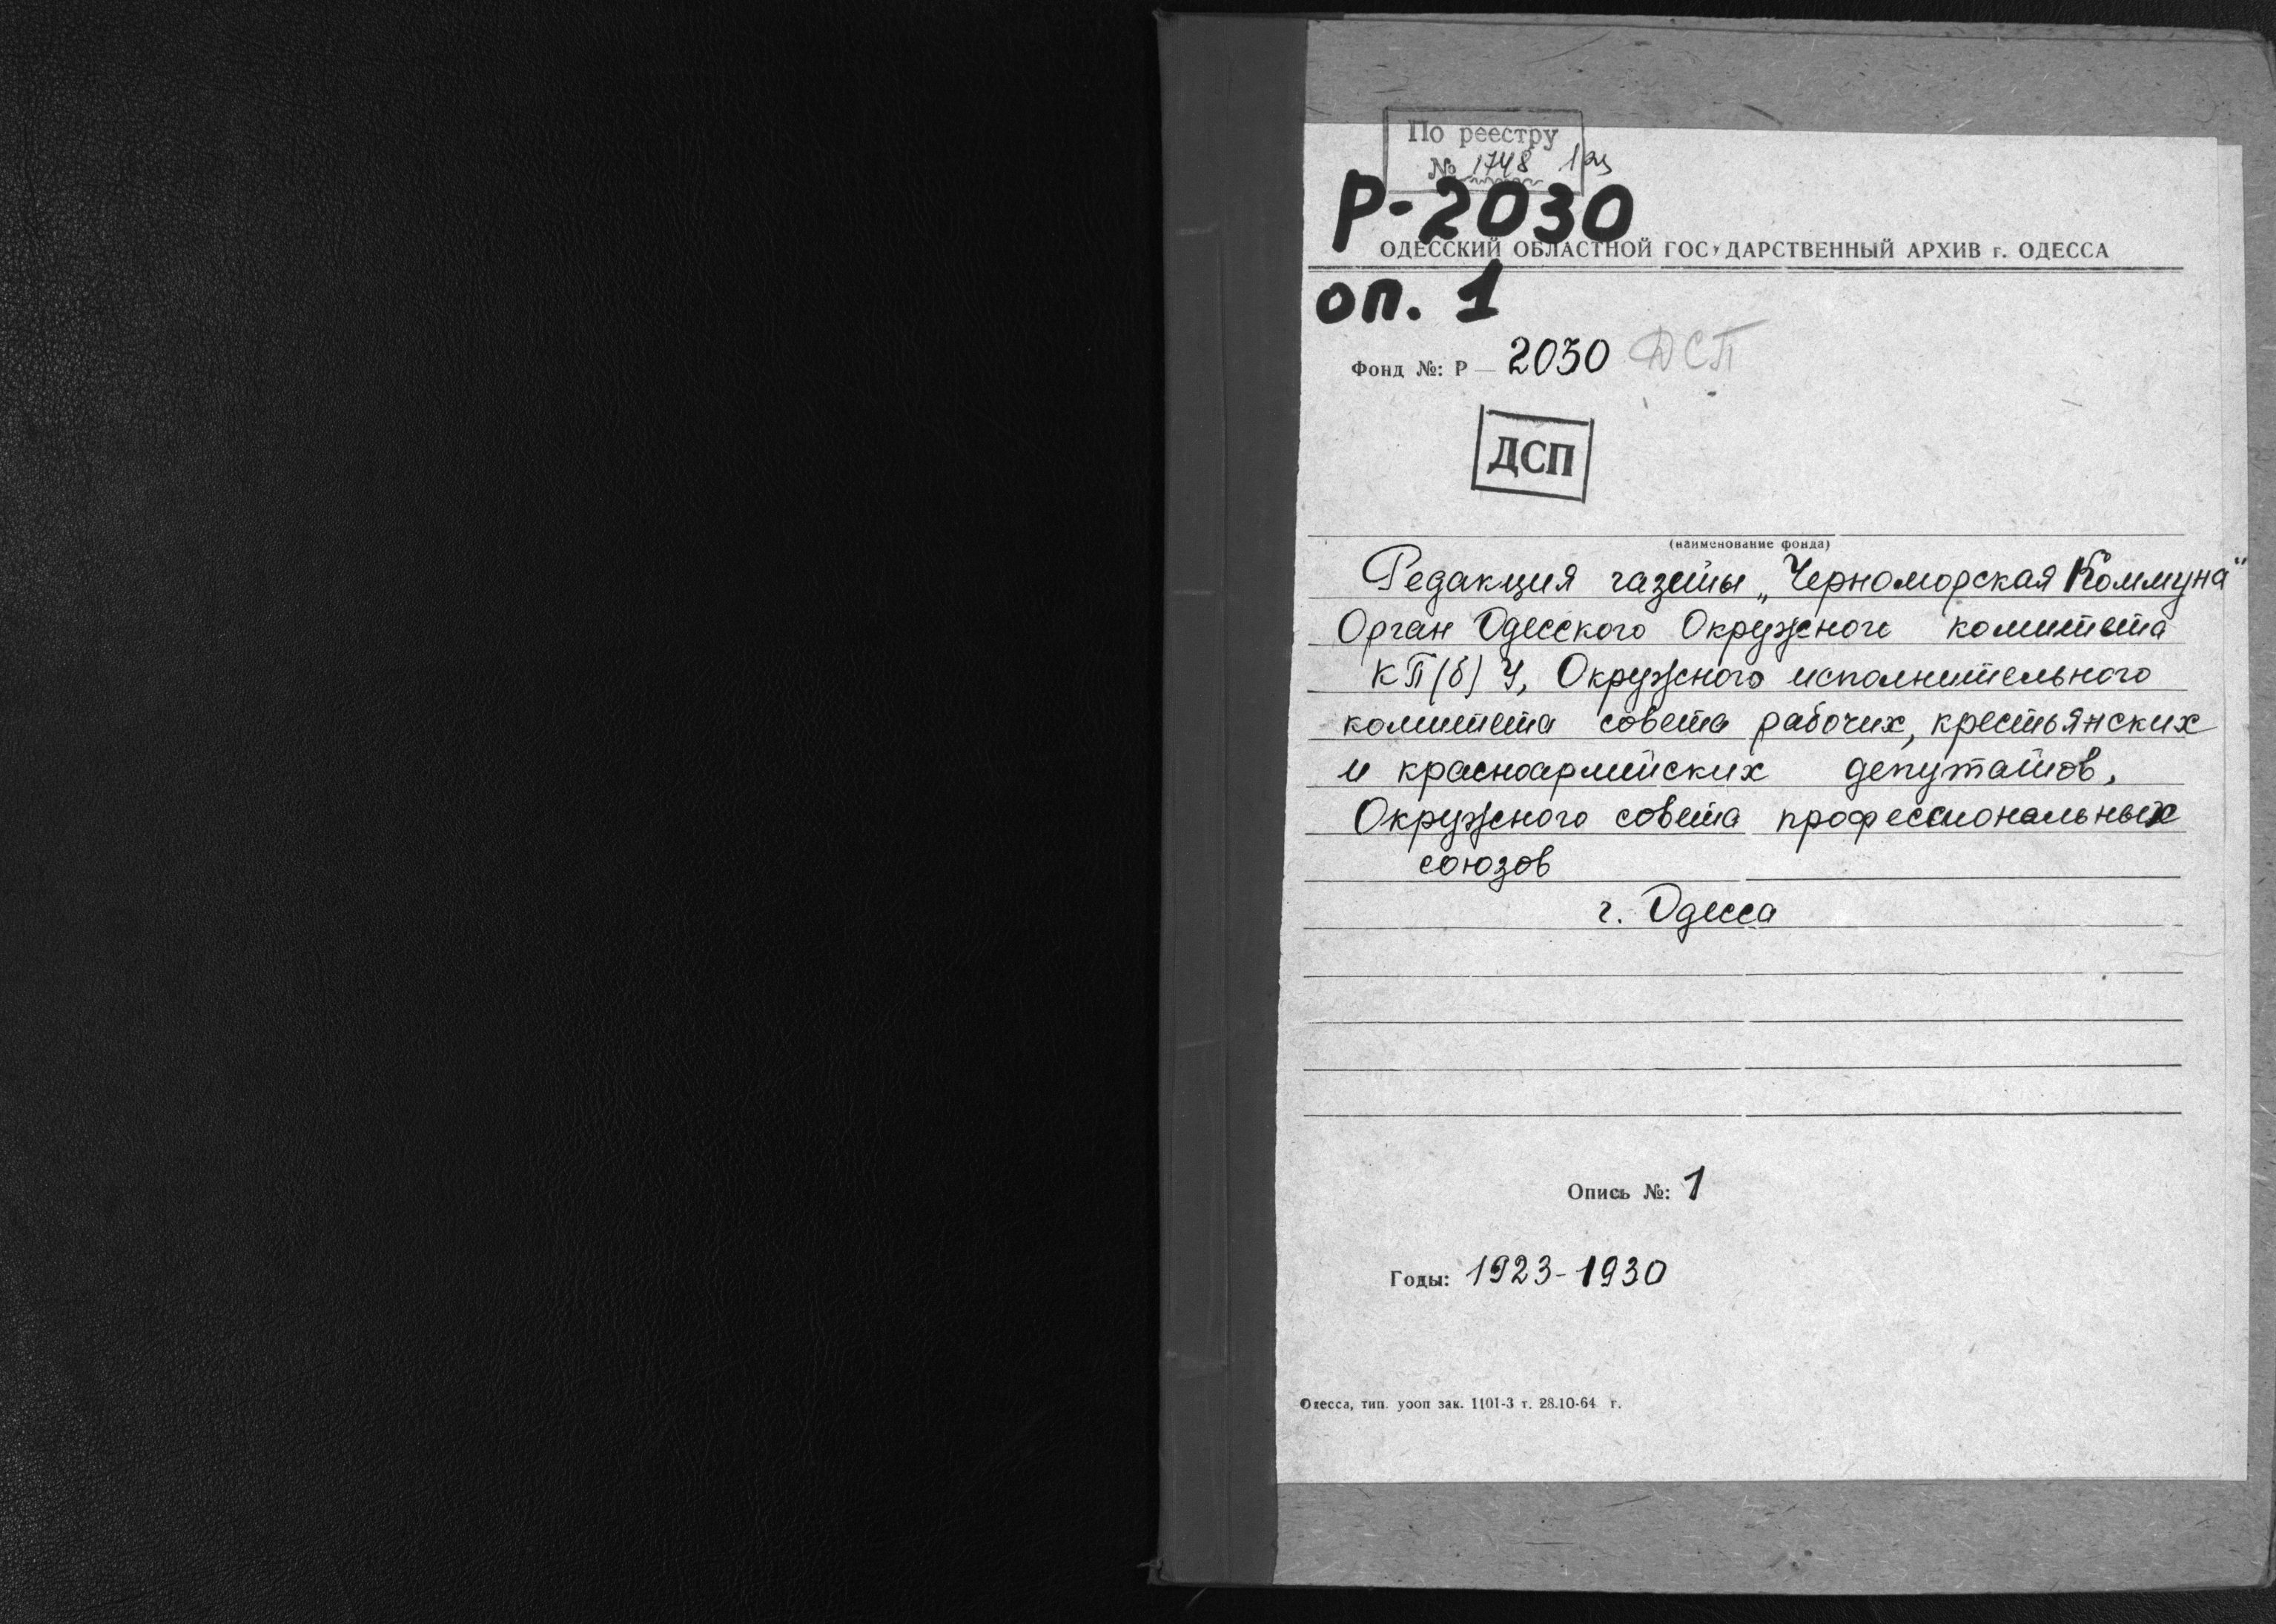 По реестру
№ 1748
Р-2030
ОДЕССКИЙ ОБЛАСТНОЙ ГОСУДАРСТВЕННЫЙ АРХИВ г. ОДЕССА
оп. 1
Фонд №: Р — 2030 ДСП
ДСП
(наименование фонда)
Редакция газеты „Черноморская Коммуна"
Орган Одесского Окружного комитета
КП(б)У, Окружного исполнительного
комитета совета рабочих, крестьянских
и красноармейских депутатов,
Окружного совета профессиональных
союзов
г. Одесса
Опись №: 1
Годы: 1923-1930
Одесса, тип. уооп зак. 1101-3 т. 28.10-64 г.